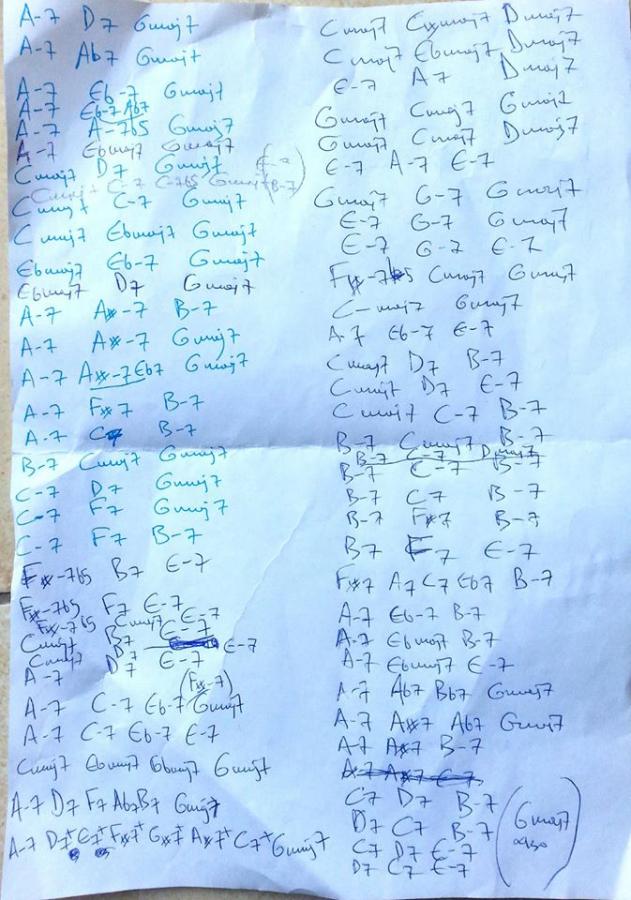 A-7 D7 Gmaj7
A-7 Ab7 Gmaj7
A-7 Eb-7 Gmaj7
A-7 Eb-7 Ab7
A-7 A-7b5 Gmaj7
A-7 Ebmaj7 Gmaj7
Cmaj7 D7 Gmaj7
Cmaj7 C-7 C-7b5 Gmaj7 (B-7)
Cmaj7 C-7 Gmaj7
Cmaj7 Ebmaj7 Gmaj7
Ebmaj7 Eb-7 Gmaj7
Ebmaj7 D7 Gmaj7
A-7 A#-7 B-7
A-7 A#-7 Gmaj7
A-7 A#-7 Eb7 Gmaj7
A-7 F#7 B-7
A-7 C7 B-7
B-7 Cmaj7 Gmaj7
C-7 D7 Gmaj7
C-7 F7 Gmaj7
C-7 F7 B-7
F#-7b5 B7 E-7
F#-7b5 F7 E-7
F#-7b5 Cmaj7 E-7
Cmaj7 B7 E-7
Cmaj7 B7 E-7
A-7 D7 E-7
(F#-7)
A-7 C-7 Eb-7 Gmaj7
A-7 C-7 Eb-7 E-7
Cmaj7 Ebmaj7 Gbmaj7 Gmaj7
A-7 D7 F7 Ab7 B7 Gmaj7
A-7 D7+ E7+ F#7+ G#7+ A#7+ C7+ Gmaj7
Cmaj7 C#maj7 Dmaj7
Cmaj7 Ebmaj7 Dmaj7
E-7 A7 Dmaj7
Gmaj7 Cmaj7 Gmaj7
Gmaj7 Cmaj7 Dmaj7
E-7 A-7 E-7
Gmaj7 G-7 Gmaj7
E-7 G-7 Gmaj7
E-7 G-7 E-7
F#-7b5 Cmaj7 Gmaj7
C-maj7 Gmaj7
A-7 Eb-7 E-7
Cmaj7 D7 B-7
Cmaj7 D7 E-7
Cmaj7 C-7 B-7
B-7 Cmaj7 B-7
B-7 C-7 Dmaj7
B-7 C-7 B-7
B-7 C7 B-7
B-7 F#7 B-7
B7 F7 E-7
F#7 A7 C7 Eb7 B-7
A-7 Eb-7 B-7
A-7 Ebmaj7 B-7
A-7 Ebmaj7 E-7
A-7 Ab7 Bb7 Gmaj7
A-7 A#7 Ab7 Gmaj7
A-7 A#7 B-7
A-7 A#7 E-7
C7 D7 B-7
D7 C7 B-7
C7 D7 E-7
D7 C7 E-7
(Gmaj7
also)